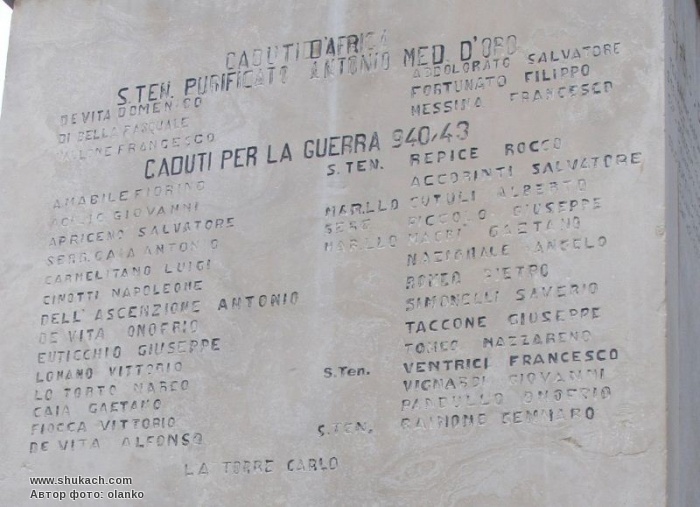 CADUTI D'AFRICA
S.TEN. PURIFICATO ANTONIO MED. D'ORO
DE VITA DOMENICO
DI BELLA PASQUALE
FRANCESCO
ADDOLORATO SALVATORE
FORTUNATO FILIPPO
MESSINA FRANCESCO
CADUTI PER LA GUERRA 940-43
AMABILE FIORINO
GIOVANNI
APRICENO SALVATORE
SERG. CAIA ANTONIO
CARMELITANO LUIGI
CINOTTI NAPOLEONE
DELL' ASCENZIONE ANTONIO
DE VITA ONOFRIO
EUTICCHIO GIUSEPPE
LOMANO VITTORIO
LO TORTO MARCO
CAIA GAETANO
FIOCCA VITTORIO
DE VITA ALFONSO
S.TEN. REPICE ROCCO
ACCORINTI SALVATORE
MAR.LLO CUTULI ALBERTO
SERG. PICCOLO GIUSEPPE
MAR.LLO MACRI GAETANO
NAZIONALE ANGELO
ROMEO PIETRO
SIMONELLI SAVERIO
TACCONE GIUSEPPE
TOMEO NAZZARENO
S.Ten. VENTRICI FRANCESCO
GIOVANNI
PANDULLO ONOFRIO
S.TEN. GENNARO
LA TORRE CARLO
www.shukach.com
Автор фото: olanko